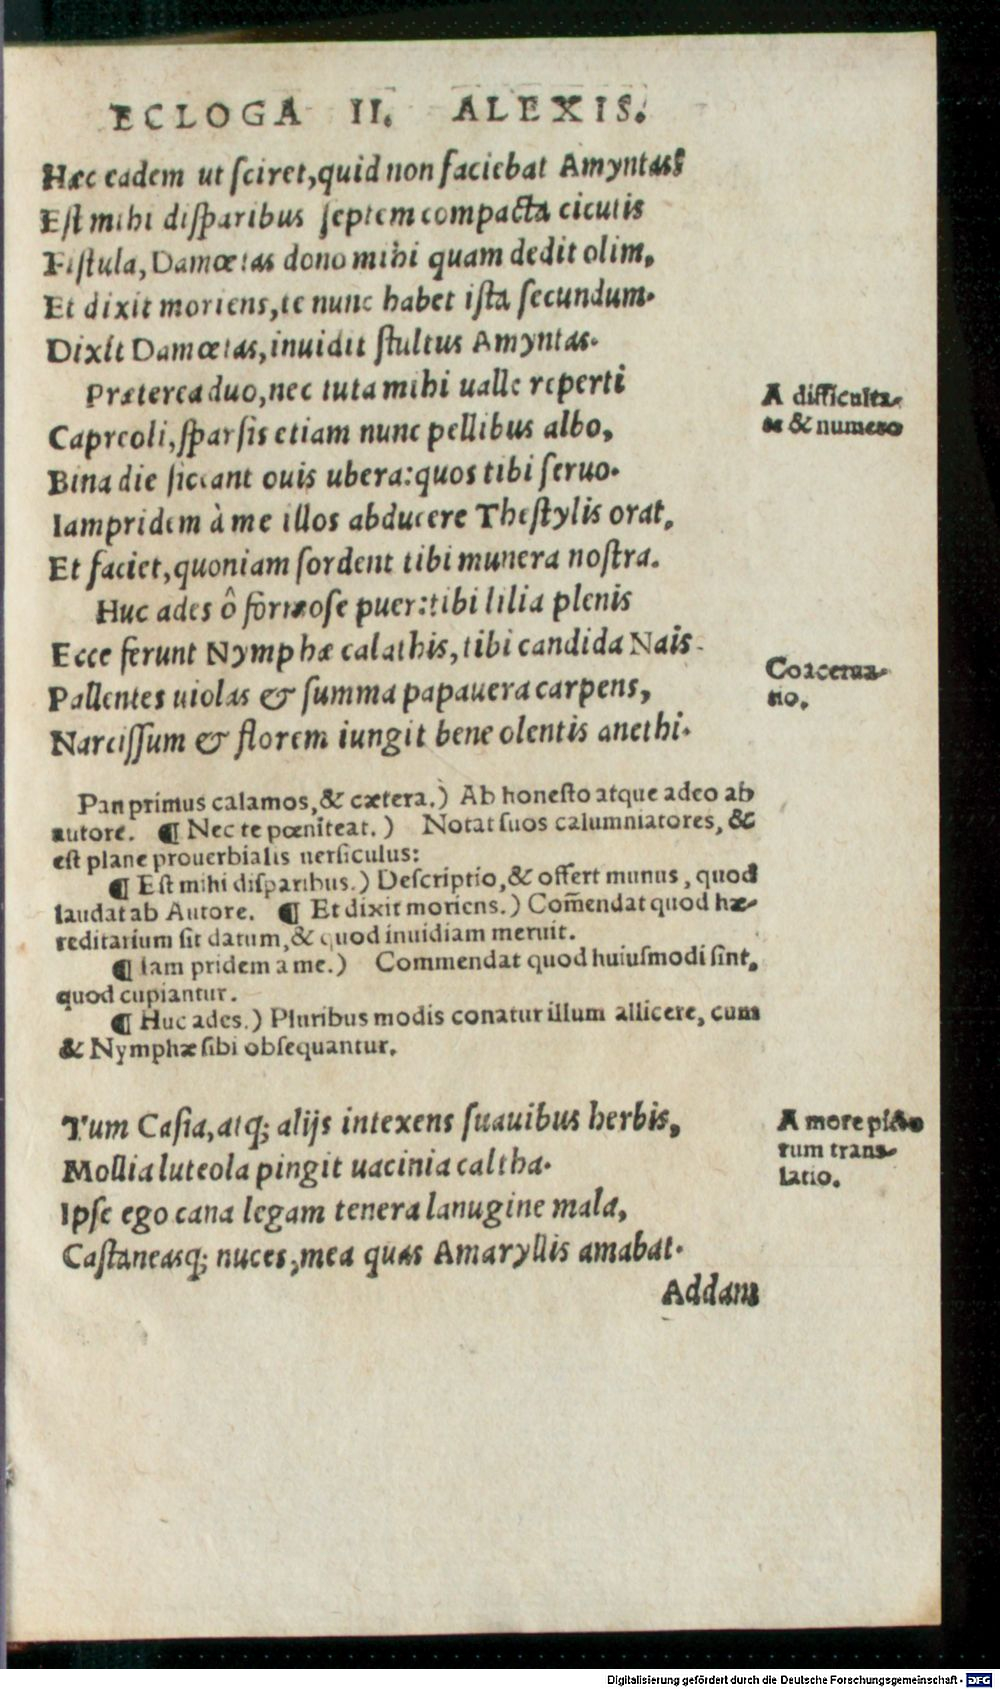 ECLOGA II. ALEXIS.
Hæc eadem ut sciret, quid non faciebat Amyntas?
Est mihi disparibus septem compacta cicutis
Fistula, Damœtas dono mihi quam dedit olim,
Et dixit moriens, te nunc habet ista secundum.
Dixit Damœtas, inuidit stultus Amyntas.
Præterea duo, nec tuta mihi ualle reperti
Capreoli, sparsis etiam nunc pellibus albo,
Bina die siccant ouis ubera: quos tibi seruo.
Iampridem à me illos abducere Thestylis orat,
Et faciet, quoniam sordent tibi munera nostra.
Huc ades ô formose puer: tibi lilia plenis
Ecce ferunt Nymphæ calathis, tibi candida Nais
Pallentes uiolas & summa papauera carpens,
Narcissum & florem iungit bene olentis anethi.
A difficulta-
te & numero
Coacerua-
tio.
Pan primus calamos, & cætera.) Ab honesto atque adeo ab
autore. ¶ Nec te pœniteat.) Notat suos calumniatores, &
est plane prouerbialis uersiculus:
¶ Est mihi disparibus.) Descriptio, & offert munus, quod
laudat ab Autore. ¶ Et dixit moriens.) Com̃endat quod hæ-
reditarium sit datum, & quod inuidiam meruit.
¶ Iam pridem a me.) Commendat quod huiusmodi sint,
quod cupiantur.
¶ Huc ades.) Pluribus modis conatur illum allicere, cum
& Nymphæ sibi obsequantur.
Tum Casia, atq; alijs intexens suauibus herbis,
Mollia luteola pingit uacinia caltha.
Ipse ego cana legam tenera lanugine mala,
Castaneasq; nuces, mea quas Amaryllis amabat.
A more picto
rum trans-
latio.
Addam
Digitalisierung gefördert durch die Deutsche Forschungsgemeinschaft - DFG